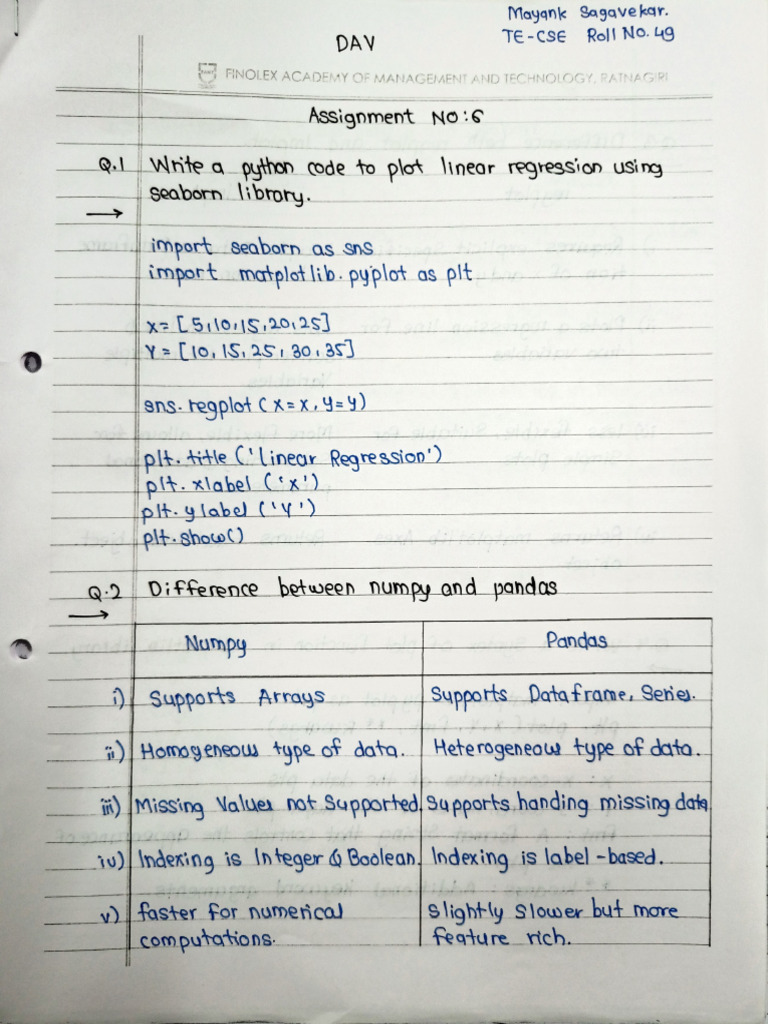 Mayank Sagavekar.
TE-CSE Roll No. 49
DAV
FINOLEX ACADEMY OF MANAGEMENT AND TECHNOLOGY, RATNAGIRI
Assignment NO:6
Q.1 Write a python code to plot linear regression using
seaborn library.
import seaborn as sns
import matplotlib.pyplot as plt
x = [5,10,15,20,25]
Y = [10,15,25,30,35]
sns.regplot (x=x, y=y)
plt.title ('linear Regression')
plt.xlabel ('x')
plt.ylabel ('Y')
plt.show()
Q.2 Difference between numpy and pandas
Numpy Pandas
i) Supports Arrays Supports Dataframe, Series.
ii) Homogeneous type of data. Heterogeneous type of data.
iii) Missing Values not Supported. Supports handing missing data
iv) Indexing is Integer & Boolean. Indexing is label-based.
v) faster for numerical slightly slower but more
computations. feature rich.